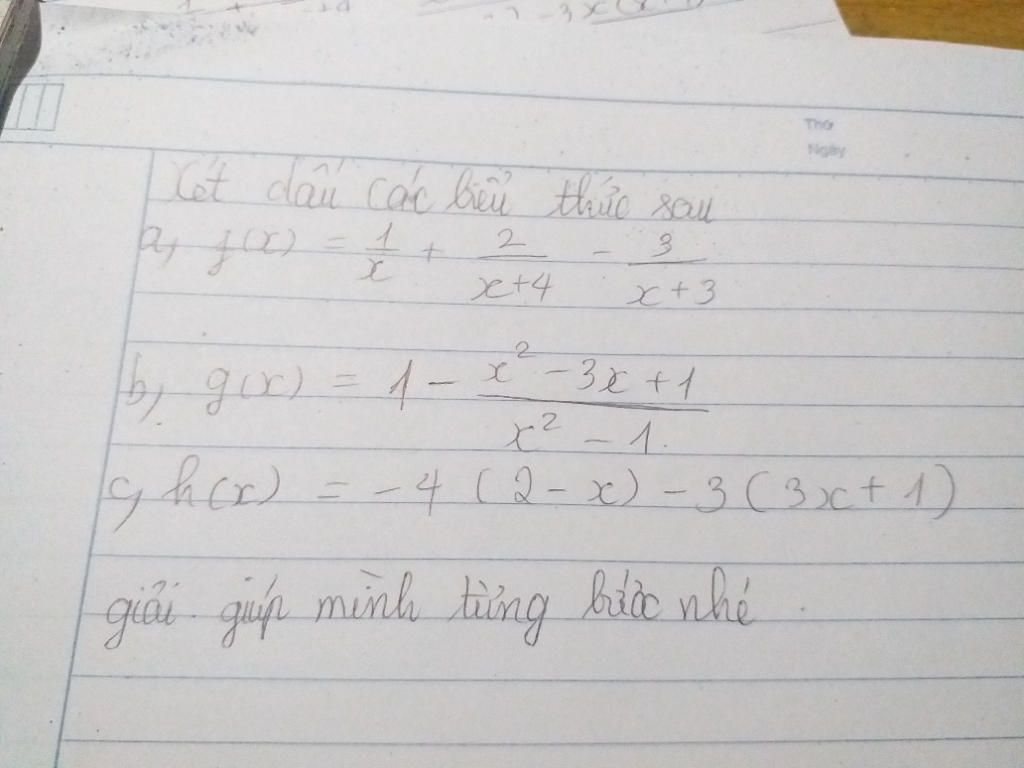 Thứ
Ngày
Xét dấu các biểu thức sau
a, f(x) = 1/x + 2/(x+4) - 3/(x+3)
b, g(x) = 1 - (x² - 3x + 1)/(x² - 1)
c, h(x) = -4 (2 - x) - 3 (3x + 1)
giải giúp mình từng bước nhé.